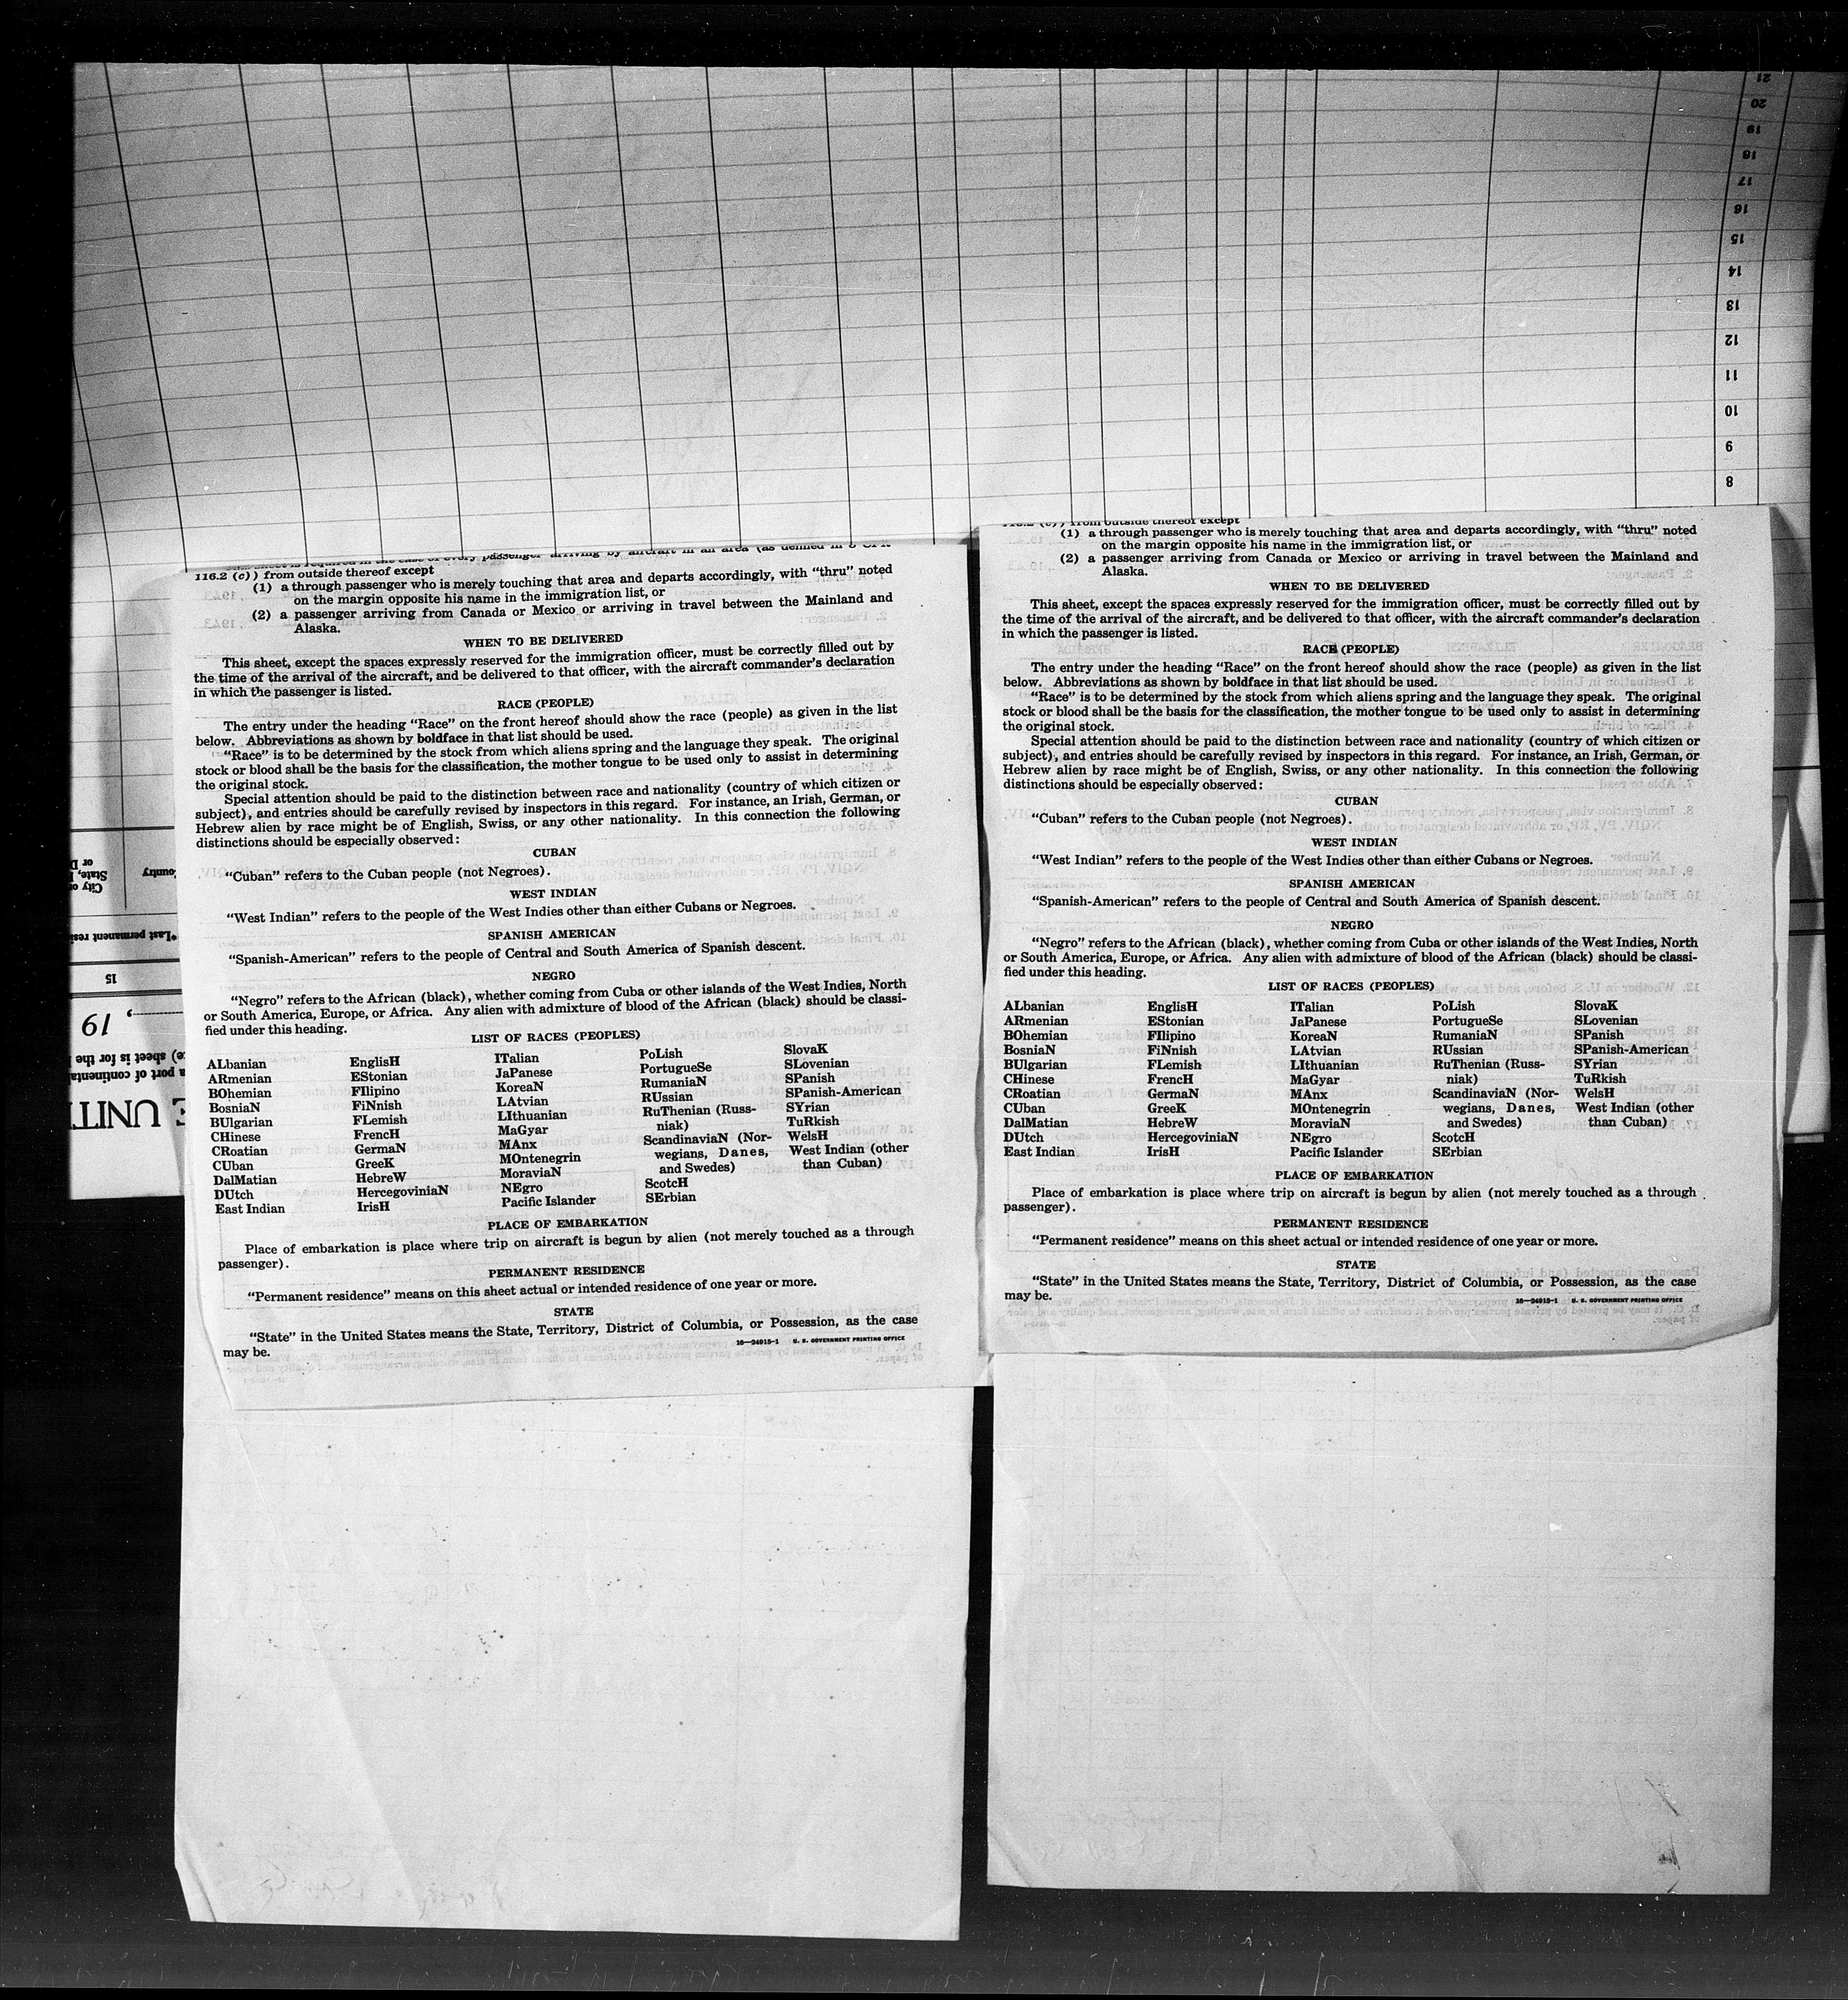 21
20
19
18
17
16
15
14
13
12
11
10
9
8
passenger arriving by aircraft in an area (as defined in 8 CFR
116.2 (c)) from outside thereof except
(1) a through passenger who is merely touching that area and departs accordingly, with “thru” noted
on the margin opposite his name in the immigration list, or
(2) a passenger arriving from Canada or Mexico or arriving in travel between the Mainland and
Alaska.
WHEN TO BE DELIVERED
This sheet, except the spaces expressly reserved for the immigration officer, must be correctly filled out by
the time of the arrival of the aircraft, and be delivered to that officer, with the aircraft commander’s declaration
in which the passenger is listed.
RACE (PEOPLE)
The entry under the heading “Race” on the front hereof should show the race (people) as given in the list
below. Abbreviations as shown by boldface in that list should be used.
“Race” is to be determined by the stock from which aliens spring and the language they speak. The original
stock or blood shall be the basis for the classification, the mother tongue to be used only to assist in determining
the original stock.
Special attention should be paid to the distinction between race and nationality (country of which citizen or
subject), and entries should be carefully revised by inspectors in this regard. For instance, an Irish, German, or
Hebrew alien by race might be of English, Swiss, or any other nationality. In this connection the following
distinctions should be especially observed:
CUBAN
“Cuban” refers to the Cuban people (not Negroes).
WEST INDIAN
“West Indian” refers to the people of the West Indies other than either Cubans or Negroes.
SPANISH AMERICAN
“Spanish-American” refers to the people of Central and South America of Spanish descent.
NEGRO
“Negro” refers to the African (black), whether coming from Cuba or other islands of the West Indies, North
or South America, Europe, or Africa. Any alien with admixture of blood of the African (black) should be classi-
fied under this heading.
LIST OF RACES (PEOPLES)
ALbanian
ARmenian
BOhemian
BosniaN
BUlgarian
CHinese
CRoatian
CUban
DalMatian
DUtch
East Indian
EnglisH
EStonian
FIlipino
FiNnish
FLemish
FrencH
GermaN
GreeK
HebreW
HercegoviniaN
IrisH
ITalian
JaPanese
KoreaN
LAtvian
LIthuanian
MaGyar
MAnx
MOntenegrin
MoraviaN
NEgro
Pacific Islander
PoLish
PortugueSe
RumaniaN
RUssian
RuThenian (Russ-
niak)
ScandinaviaN (Nor-
wegians, Danes,
and Swedes)
ScotcH
SErbian
SlovaK
SLovenian
SPanish
SPanish-American
SYrian
TuRkish
WelsH
West Indian (other
than Cuban)
PLACE OF EMBARKATION
Place of embarkation is place where trip on aircraft is begun by alien (not merely touched as a through
passenger).
PERMANENT RESIDENCE
“Permanent residence” means on this sheet actual or intended residence of one year or more.
STATE
“State” in the United States means the State, Territory, District of Columbia, or Possession, as the case
may be.
16—24915-1 U. S. GOVERNMENT PRINTING OFFICE
116.2 (c)) from outside thereof except
(1) a through passenger who is merely touching that area and departs accordingly, with “thru” noted
on the margin opposite his name in the immigration list, or
(2) a passenger arriving from Canada or Mexico or arriving in travel between the Mainland and
Alaska.
WHEN TO BE DELIVERED
This sheet, except the spaces expressly reserved for the immigration officer, must be correctly filled out by
the time of the arrival of the aircraft, and be delivered to that officer, with the aircraft commander’s declaration
in which the passenger is listed.
RACE (PEOPLE)
The entry under the heading “Race” on the front hereof should show the race (people) as given in the list
below. Abbreviations as shown by boldface in that list should be used.
“Race” is to be determined by the stock from which aliens spring and the language they speak. The original
stock or blood shall be the basis for the classification, the mother tongue to be used only to assist in determining
the original stock.
Special attention should be paid to the distinction between race and nationality (country of which citizen or
subject), and entries should be carefully revised by inspectors in this regard. For instance, an Irish, German, or
Hebrew alien by race might be of English, Swiss, or any other nationality. In this connection the following
distinctions should be especially observed:
CUBAN
“Cuban” refers to the Cuban people (not Negroes).
WEST INDIAN
“West Indian” refers to the people of the West Indies other than either Cubans or Negroes.
SPANISH AMERICAN
“Spanish-American” refers to the people of Central and South America of Spanish descent.
NEGRO
“Negro” refers to the African (black), whether coming from Cuba or other islands of the West Indies, North
or South America, Europe, or Africa. Any alien with admixture of blood of the African (black) should be classi-
fied under this heading.
LIST OF RACES (PEOPLES)
ALbanian
ARmenian
BOhemian
BosniaN
BUlgarian
CHinese
CRoatian
CUban
DalMatian
DUtch
East Indian
EnglisH
EStonian
FIlipino
FiNnish
FLemish
FrencH
GermaN
GreeK
HebreW
HercegoviniaN
IrisH
ITalian
JaPanese
KoreaN
LAtvian
LIthuanian
MaGyar
MAnx
MOntenegrin
MoraviaN
NEgro
Pacific Islander
PoLish
PortugueSe
RumaniaN
RUssian
RuThenian (Russ-
niak)
ScandinaviaN (Nor-
wegians, Danes,
and Swedes)
ScotcH
SErbian
SlovaK
SLovenian
SPanish
SPanish-American
SYrian
TuRkish
WelsH
West Indian (other
than Cuban)
PLACE OF EMBARKATION
Place of embarkation is place where trip on aircraft is begun by alien (not merely touched as a through
passenger).
PERMANENT RESIDENCE
“Permanent residence” means on this sheet actual or intended residence of one year or more.
STATE
“State” in the United States means the State, Territory, District of Columbia, or Possession, as the case
may be.
16—24915-1 U. S. GOVERNMENT PRINTING OFFICE
E UNIT
a port of continenta
e) sheet is for the
, 19
15
*Last permanent resi
Country
City or
State,
or